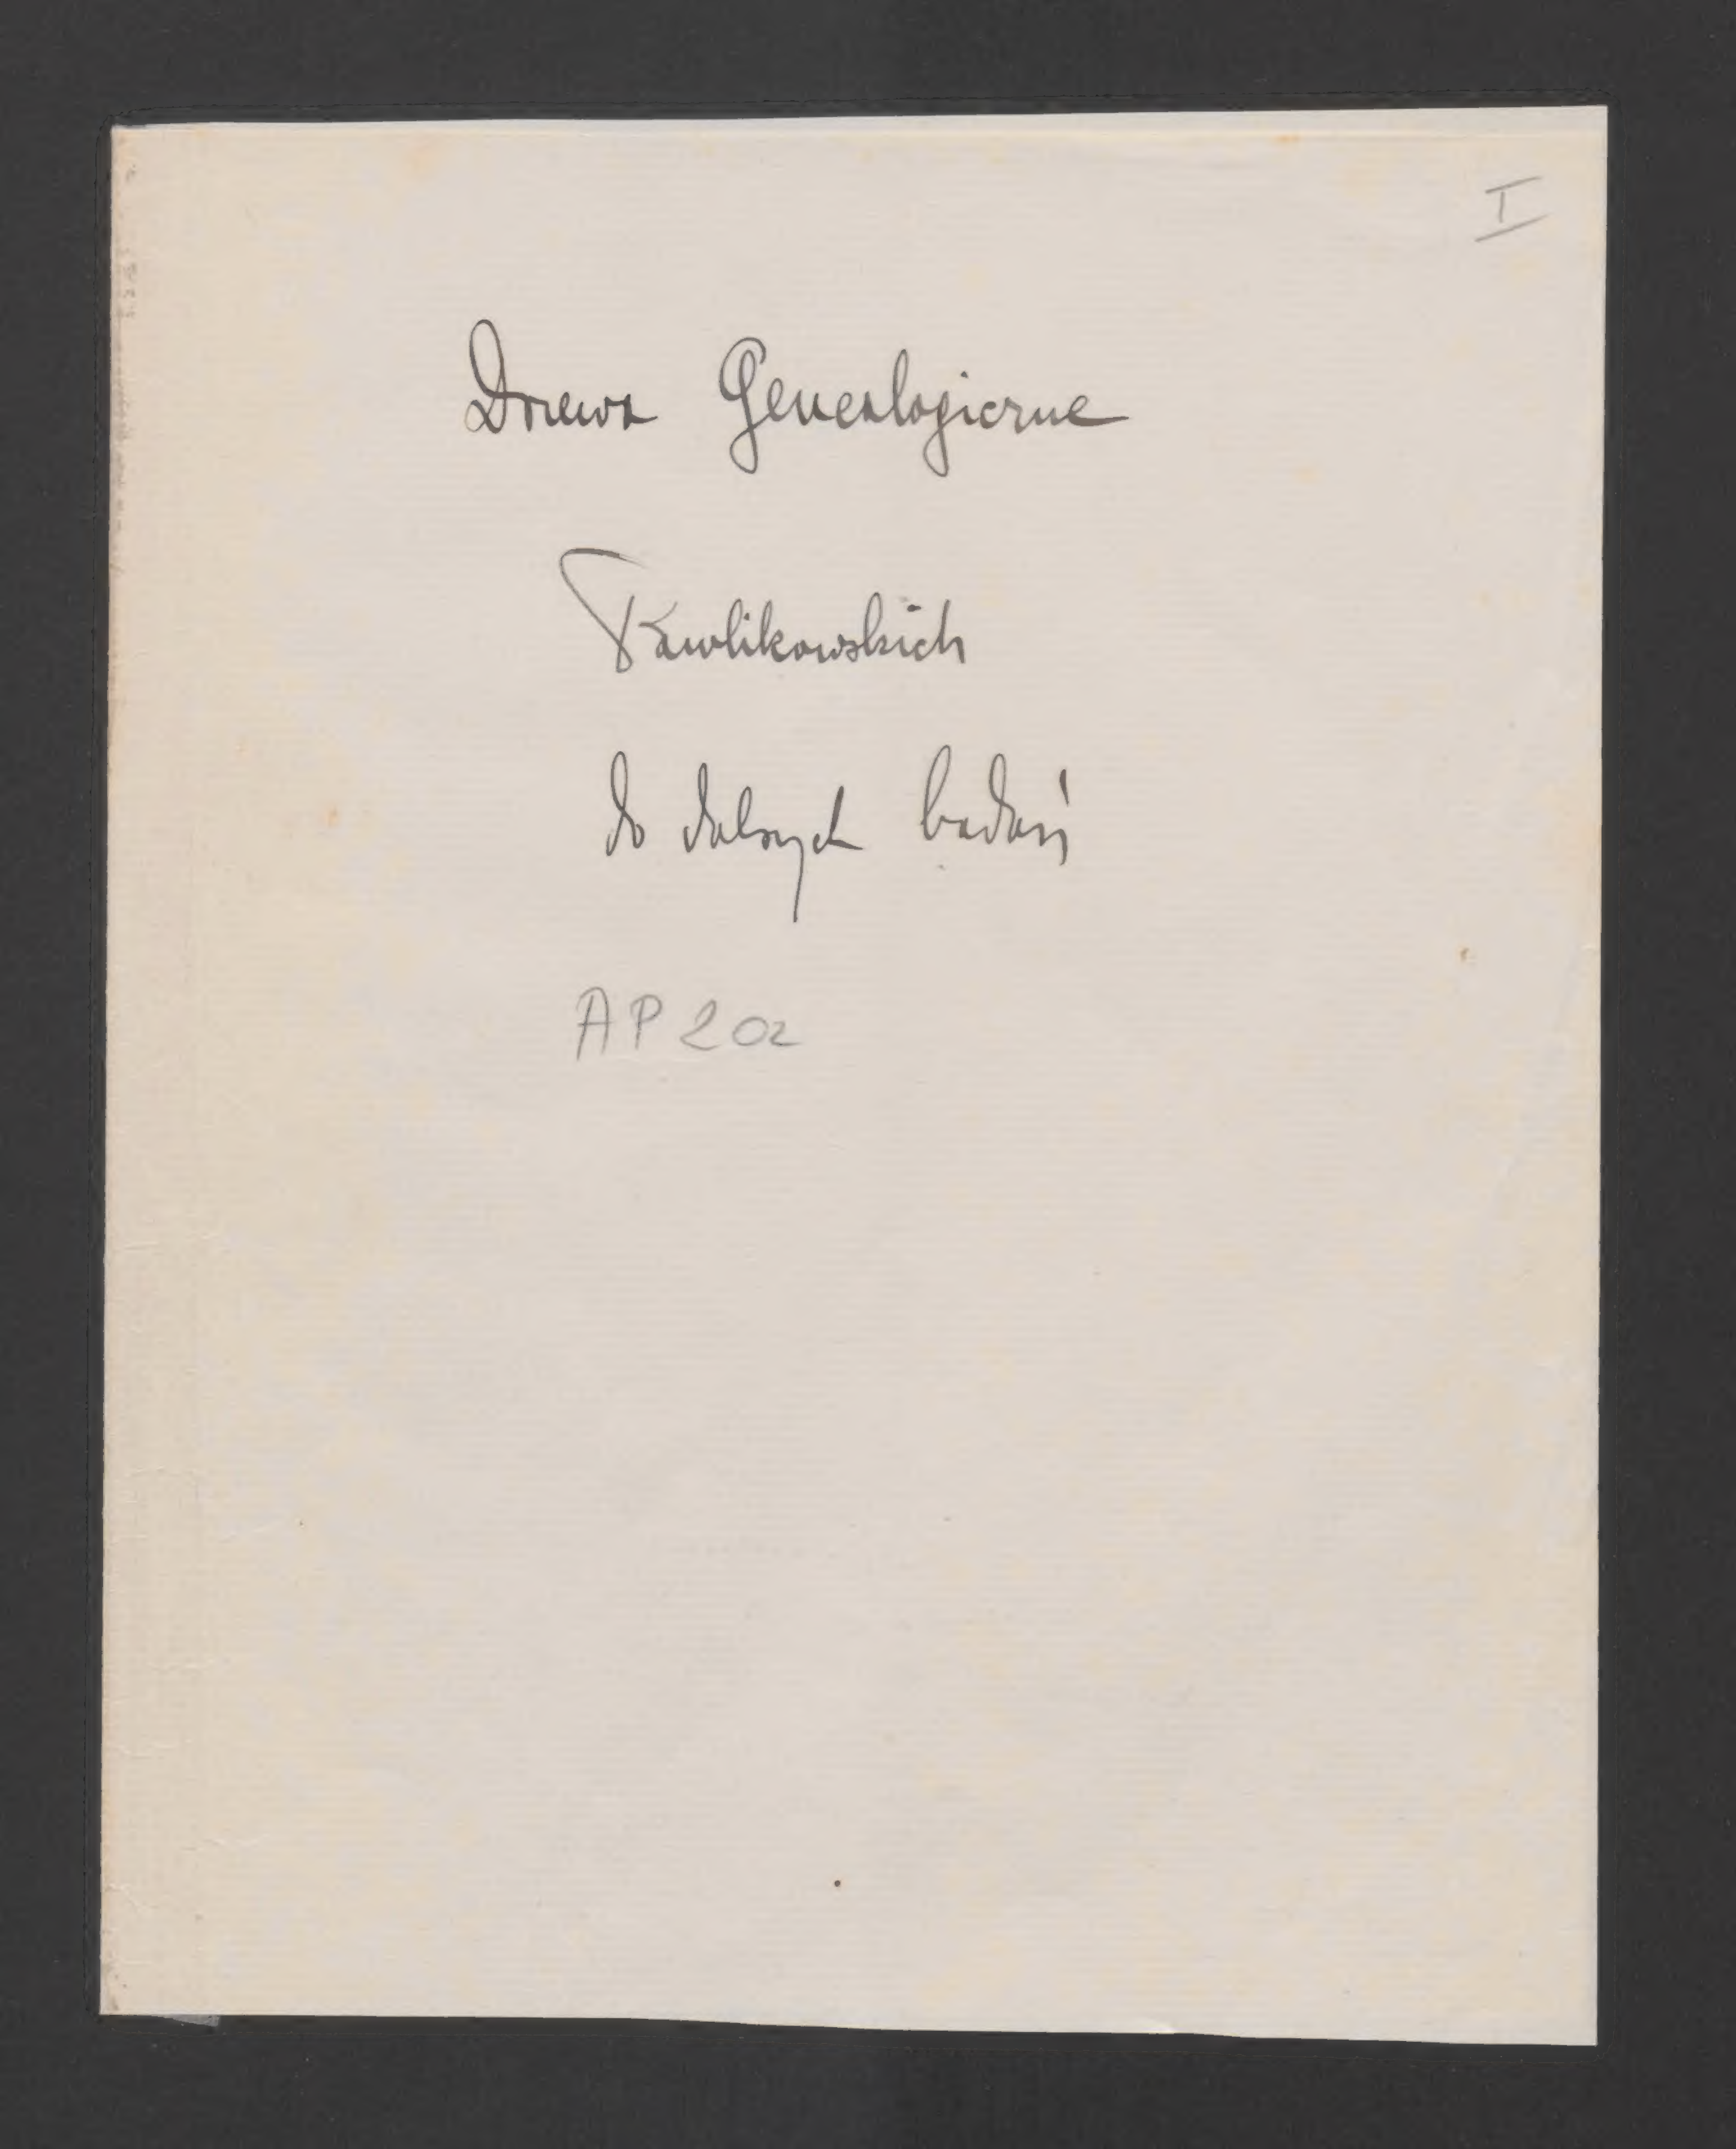 I
Drzewa Genealogiczne
Pawlikowskich
do dalszych badań
AP 202